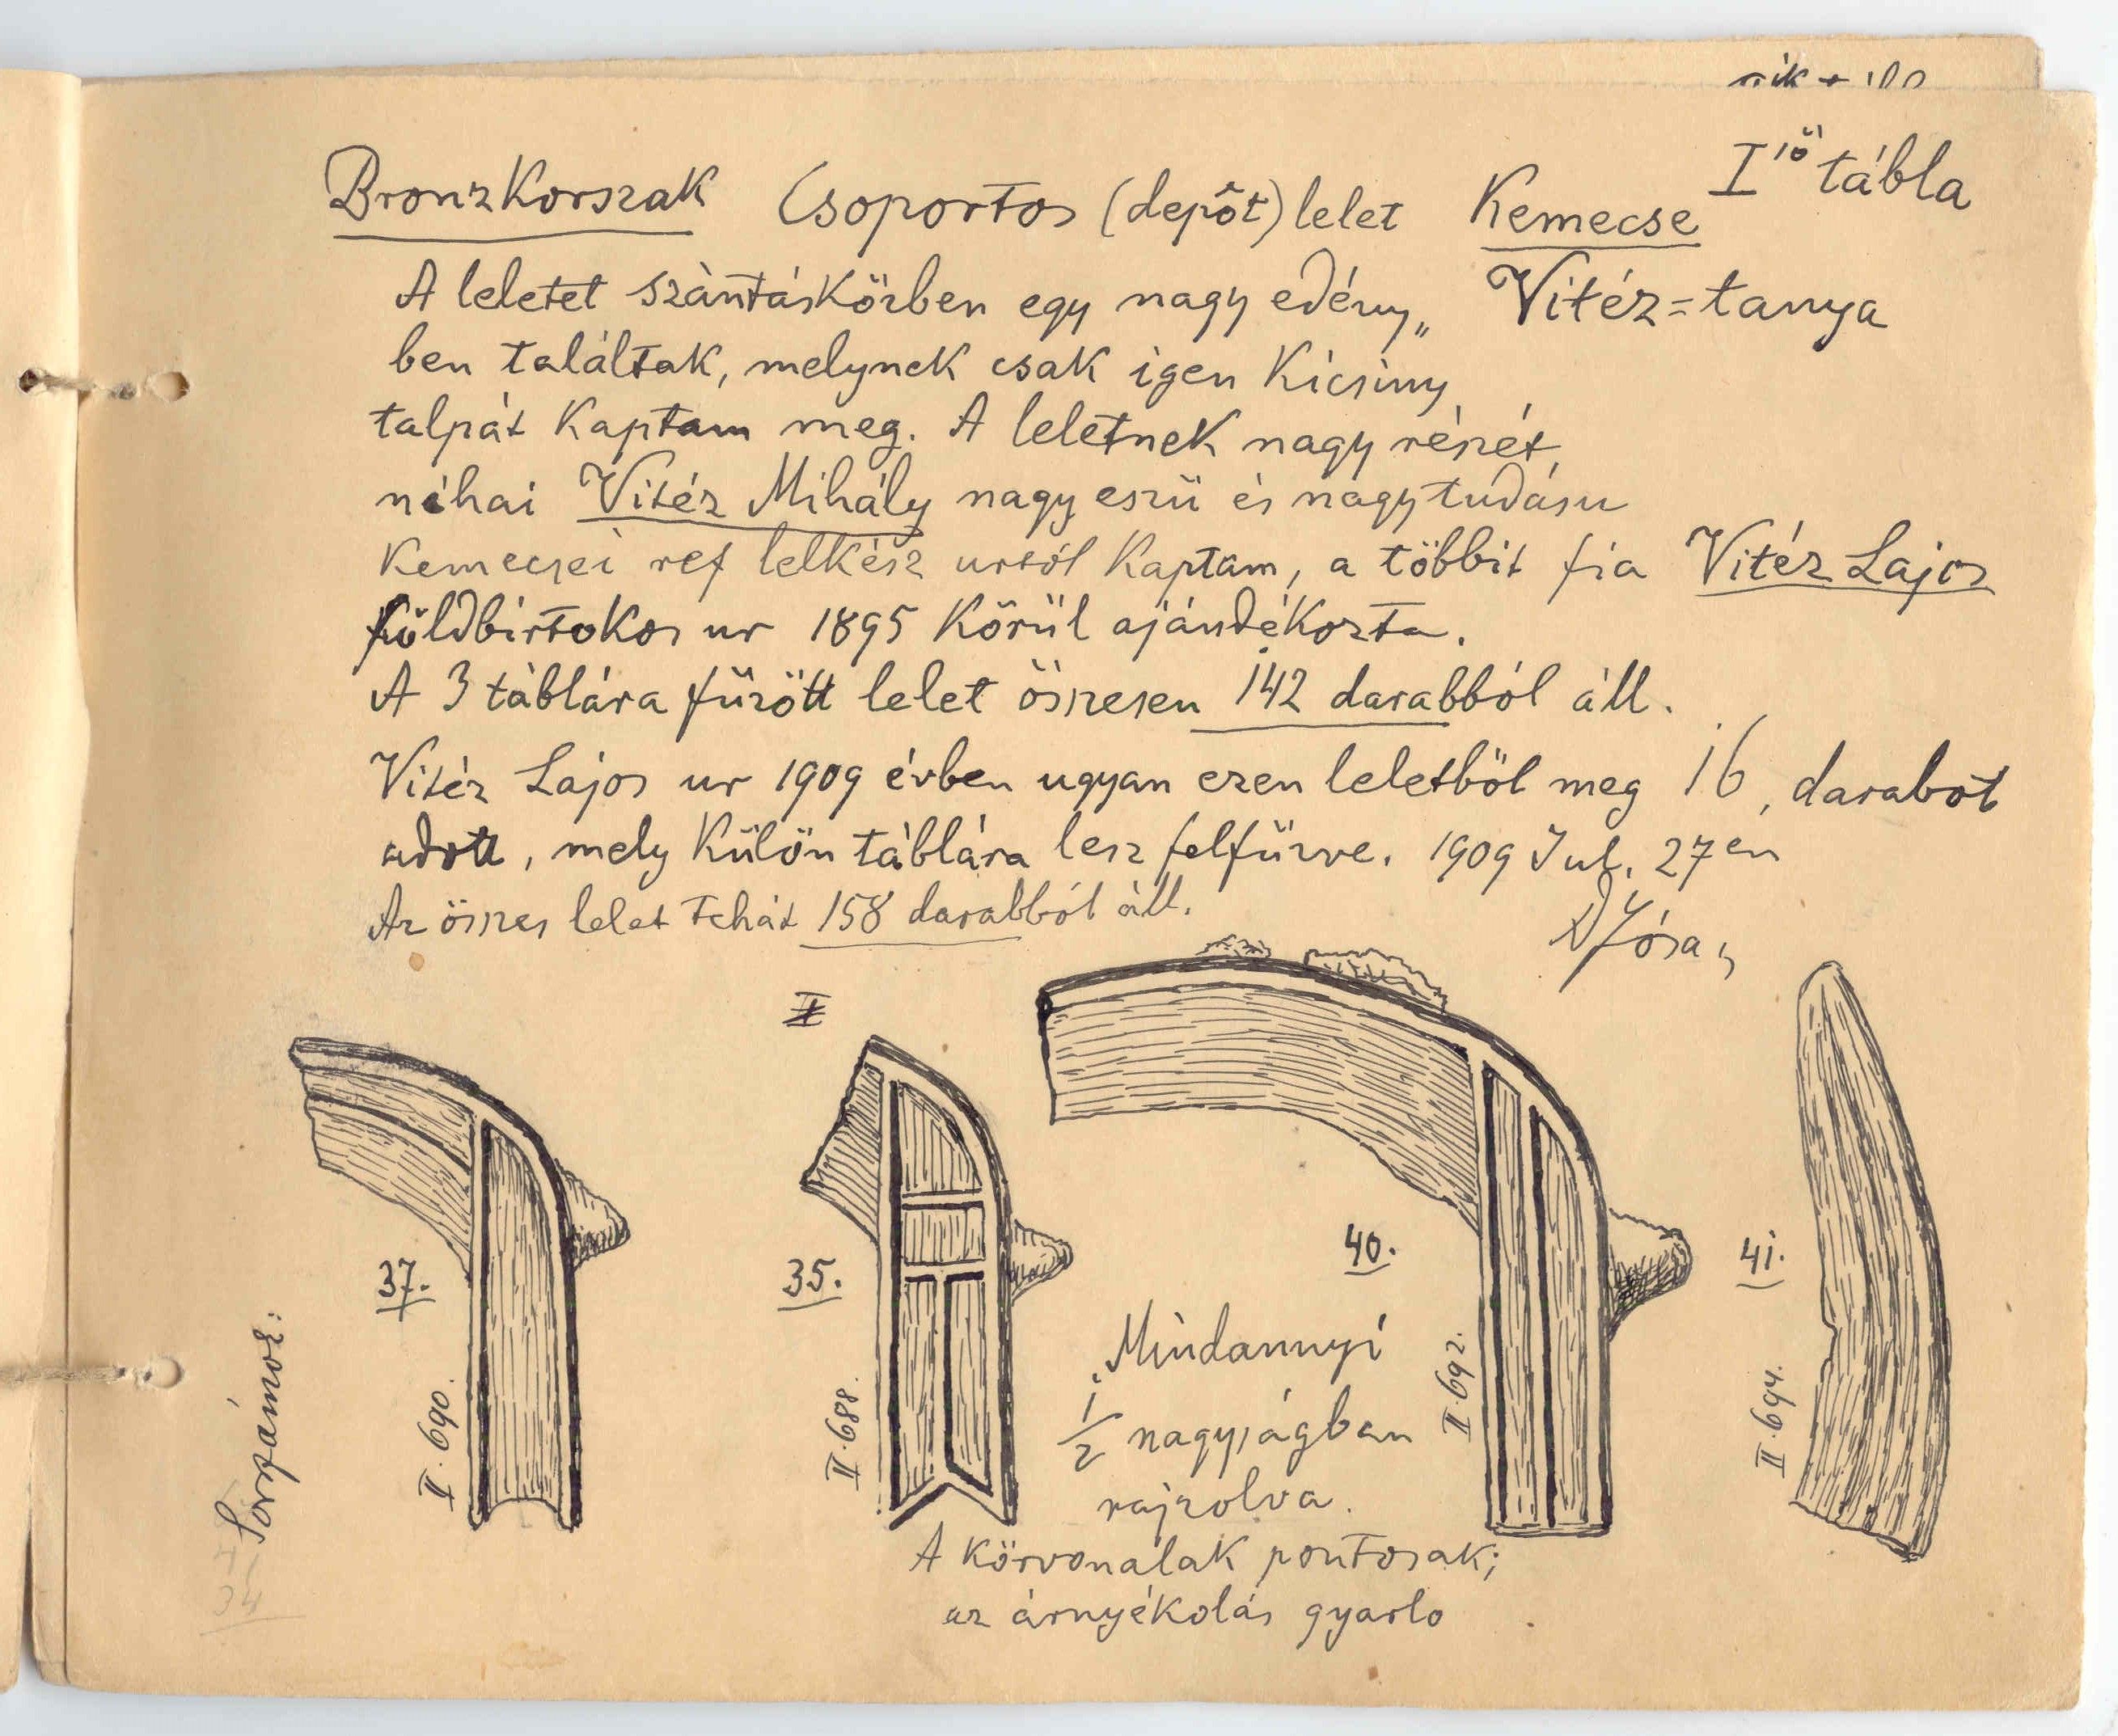 I ső tábla
Bronzkorszak Csoportos (depôt) lelet Kemecse
A leletet szàntáskörben egy nagy edény„ Vitéz=tanya
ben találtak, melynek csak igen Kicsiny
talpát Kaptam meg. A leletnek nagy részét
néhai Vitéz Mihály nagy eszü és nagytudásu
Kemecsei ref lelkész urtól Kaptam, a többit fia Vitéz Lajos
földbirtokos ur 1895 Körül ajándékozta.
A 3 táblára fűzött lelet öszzesen 142 darabból áll.
Vitéz Lajos ur 1909 évben ugyan ezen leletből meg 16, darabot
adott, mely Külön táblára lesz felfűzve. 1909 Jul. 27én
Az öszzes lelet tehát 158 darabból áll.
Dr Jósa
37.
35.
40.
41.
II. 690.
II. 688.
II. 692.
II. 694.
Sorszámok:
34
Mindannyi
1/2 nagyságban
rajzolva.
A Körvonalak pontosak;
az árnyékolás gyarlo